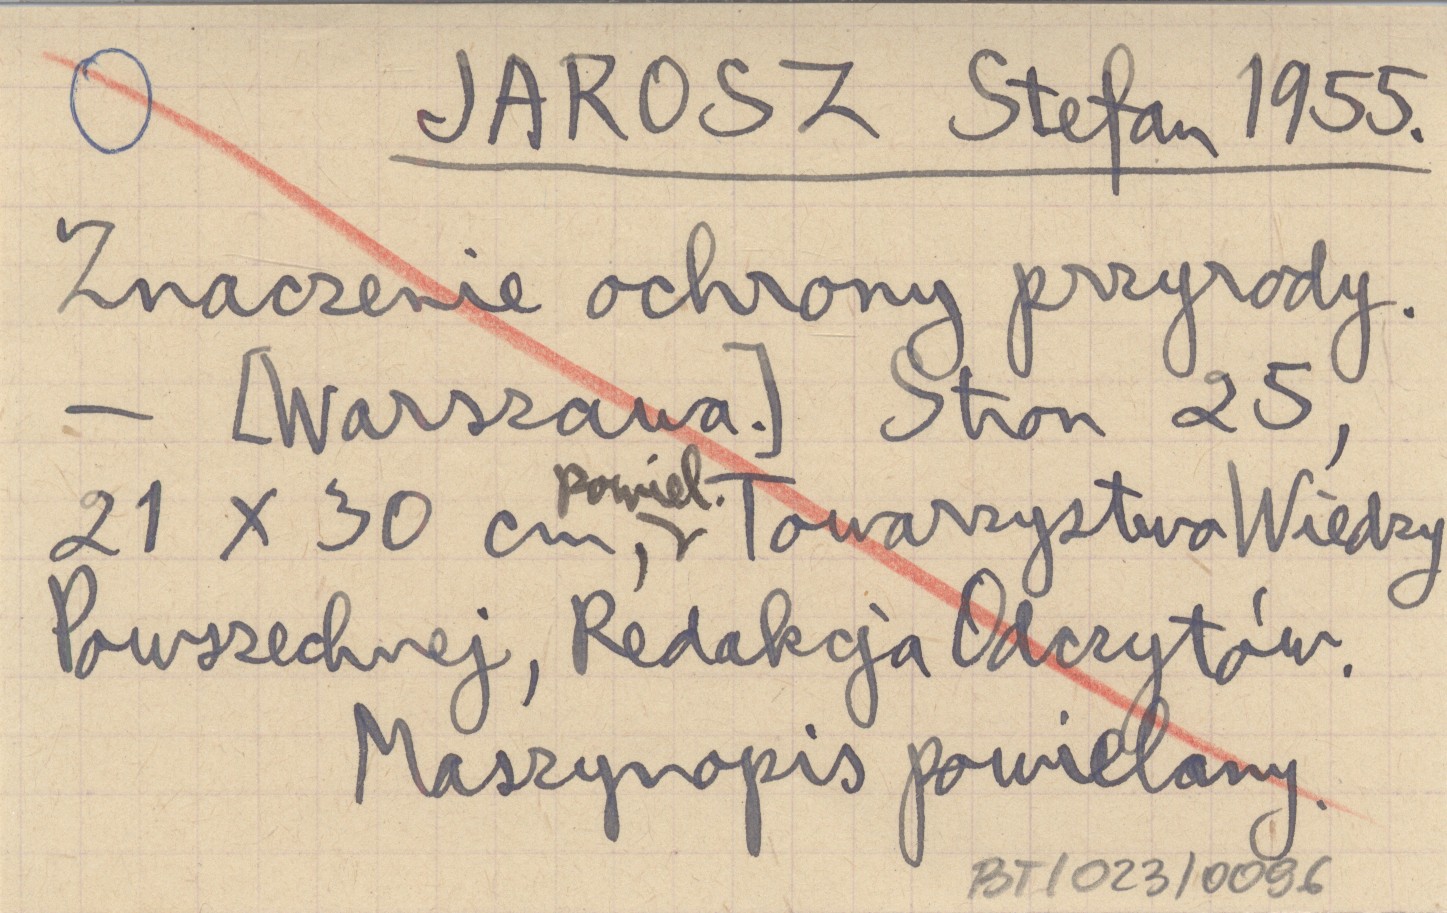 JAROSZ Stefan 1955.
Znaczenie ochrony przyrody.
— [Warszawa.] Stron 25,
powiel.
21 x 30 cm, Towarzystwo Wiedzy
Powszechnej, Redakcja Odczytów.
Maszynopis powielany.
BT/023/0096